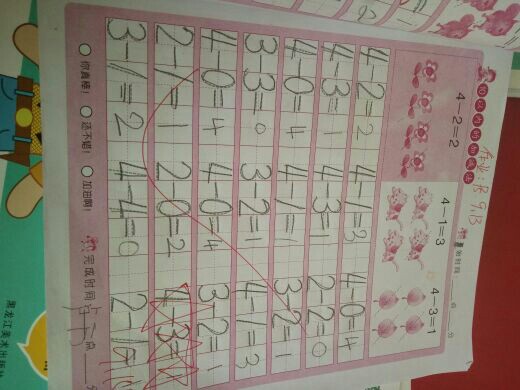 10以内的加减法
4-2=2 4-1=3 4-3=1
4-2=2 4-1=3 4-0=4
4-3=1 4-3=1 2-2=0
4-0=4 4-1=1 3-2=1
3-3=0 3-2=1 4-1=3
4-0=4 4-0=4 3-2=1
2-1=1 2-0=2 4-3=
3-1=2 4-4=0 2-1=
你真棒! 还不错! 加油啊! 完成时间 点
黑龙江美术出版社